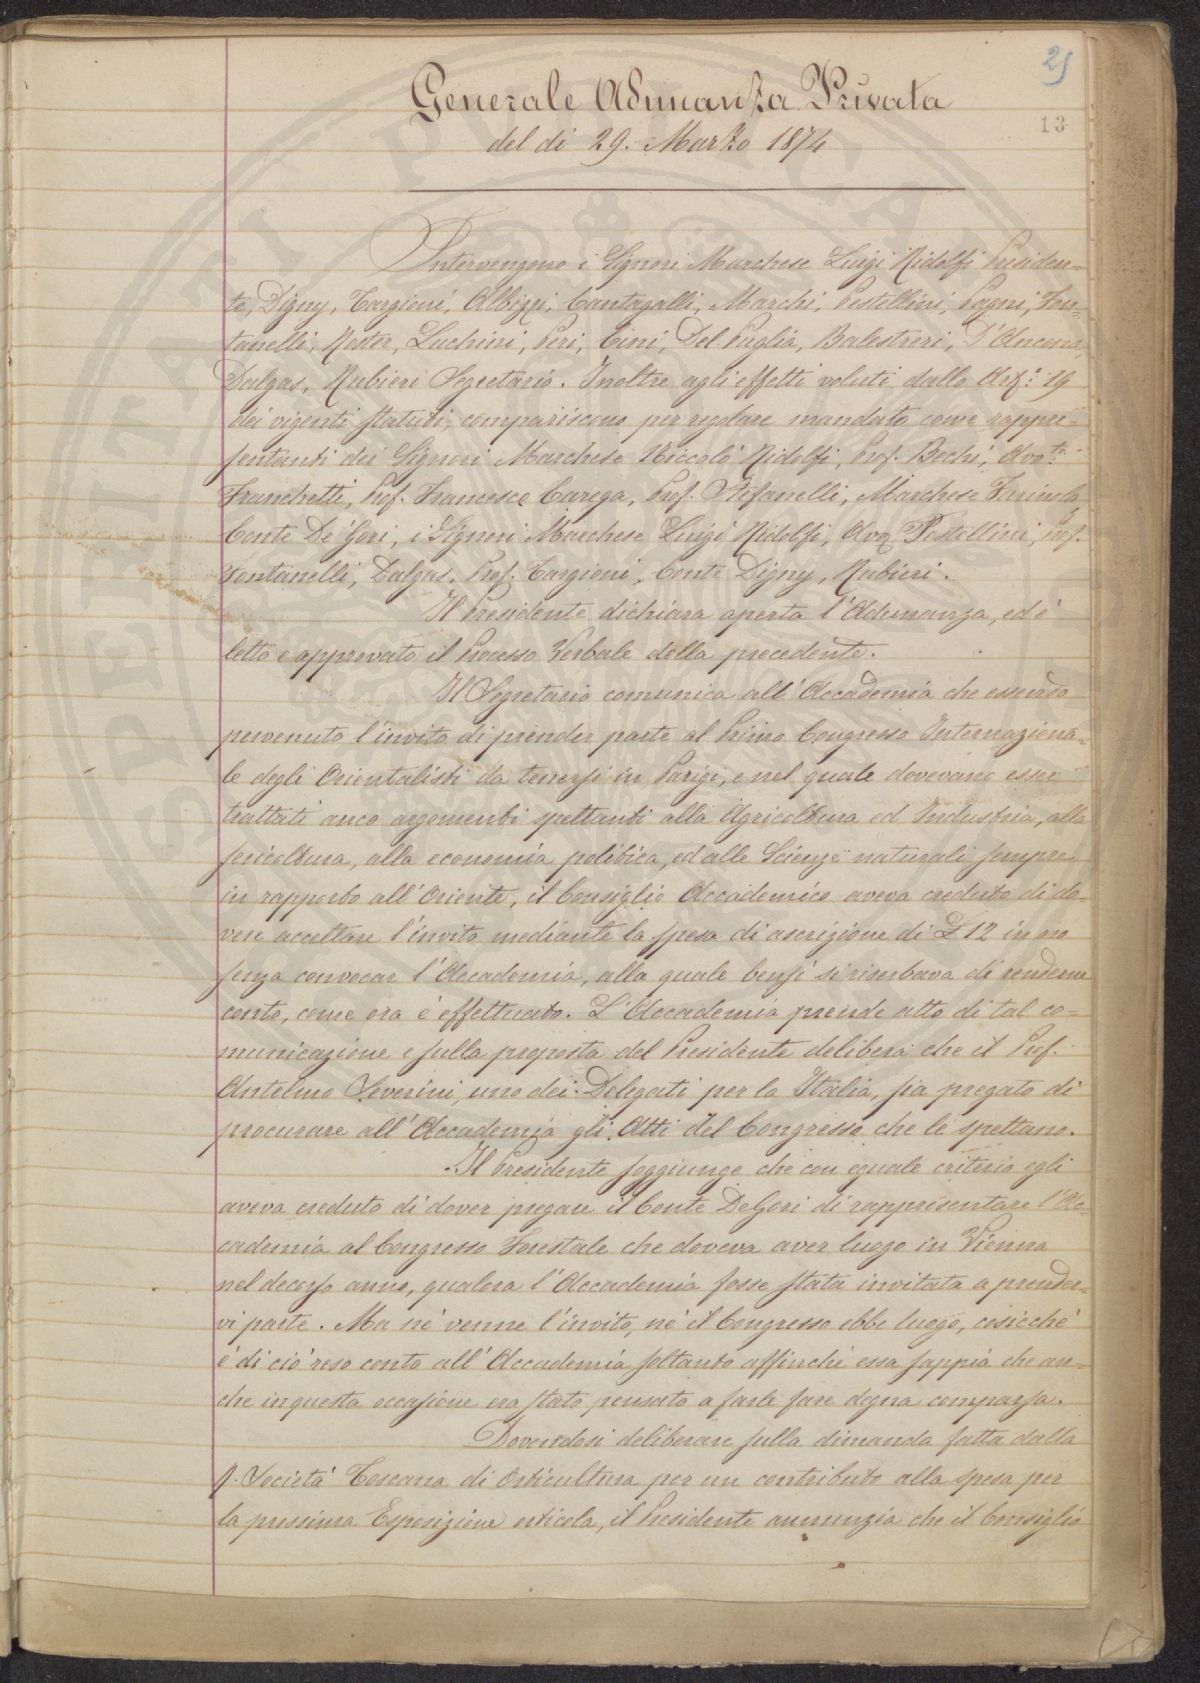 25
13
Generale Adunanza Privata
del dì 29. Marzo 1874
Intervengono i Signori Marchese Luigi Ridolfi Presiden=
te, Digny, Targioni, Albizzi, Cantagalli, Marchi, Pestellini, Pagni, Fon=
tanelli, Roster, Luchini, Peri, Cini, Del Puglia, Balestreri, D'Ancona,
Dalgas, Rubieri Segretario. Inoltre agli effetti voluti dallo Art.º 19
dei vigenti statuti, compariscono per regolare mandato come rappre=
sentanti dei Signori Marchese Niccolò Ridolfi, Prof. Bechi, Avv.to
Franchetti, Prof. Francesco Carega, Prof. Stefanelli, Marchese Farinola
Conte De Gori, i Signori Marchese Luigi Ridolfi, Avv. Pestellini, Prof.
Fontanelli, Dalgas, Prof. Targioni, Conte Digny, Rubieri.
Il Presidente dichiara aperta l'Adunanza, ed è
letto e approvato il Processo Verbale della precedente.
Il Segretario comunica all'Accademia che essendo
pervenuto l'invito di prender parte al Primo Congresso Internaziona=
le degli Orientalisti da tenersi in Parigi, e nel quale dovevano esser
trattati anco argomenti spettanti alla Agricoltura ed Industria, alla
sericoltura, alla economia politica, ed alle Scienze naturali sempre
in rapporto all'Oriente, il Consiglio Accademico aveva creduto di do=
vere accettare l'invito mediante la spesa di ascrizione di £ 12 in no
senza convocar l'Accademia, alla quale bensì si riserbava di renderne
conto, come ora è effettuato. L'Accademia prende atto di tal co=
municazione e sulla proposta del Presidente delibera che il Prof.
Antelmo Severini, uno dei Delegati per la Italia, sia pregato di
procurare all'Accademia gli Atti del Congresso che le spettano.
Il Presidente soggiunge che con eguale criterio egli
aveva creduto di dover pregare il Conte De Gori di rappresentare l'Ac=
cademia al Congresso Forestale che doveva aver luogo in Vienna
nel decorso anno, qualora l'Accademia fosse stata invitata a prender=
vi parte. Ma nè venne l'invito, nè il Congresso ebbe luogo, cosicchè
è di ciò reso conto all'Accademia soltanto affinchè essa sappia che an=
che in questa occasione era stato pensato a farle fare degna comparsa.
Dovendosi deliberare sulla dimanda fatta dalla
R. Società Toscana di Orticultura per un contributo alla spesa per
la prossima Esposizione orticola, il Presidente annunzia che il Consiglio